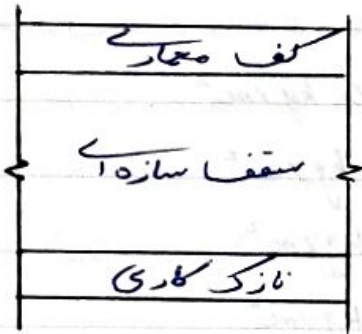 کف معماری
سقف سازه‌ای
نازک کاری